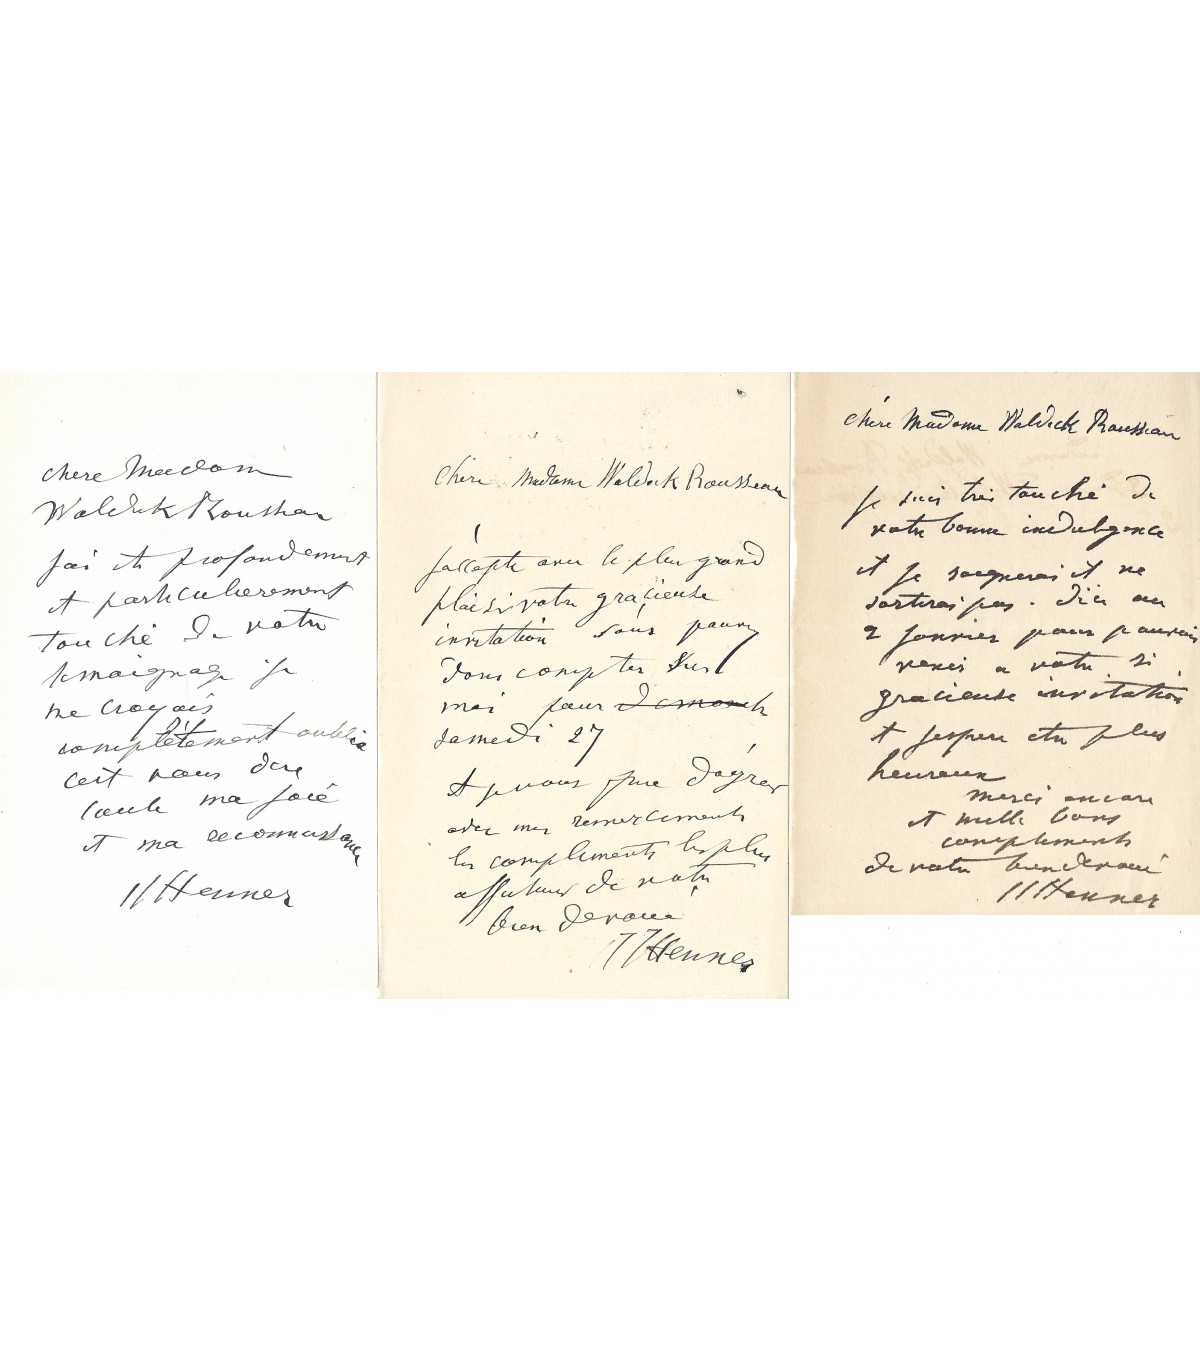 chere Madam
Waldeck Rousseau
J'ai été profondement
et particulierement
touché de votre
temoignage je
me croyais
complètement oublié
c'est vous dire
toute ma joie
et ma reconnaissance
JJ Henner
chère Madame Waldeck Rousseau
J'accepte avec le plus grand
plaisir votre gracieuse
invitation vous pouvez
donc compter sur
moi pour dimanche
samedi 27
et je vous prie d'agréer
avec mes remerciements
les compliments les plus
affectueux de votre
bien devoué
JJ Henner
chère Madame Waldeck Rousseau
Je suis très touché de
votre bonne indulgence
et je soignerai et ne
sortirai pas. d'ici au
2 janvier pour pouvoir
venir a votre si
gracieuse invitation
et j'espere etre plus
heureux
merci encore
et mille bons
compliments
de votre bien devoué
JJ Henner